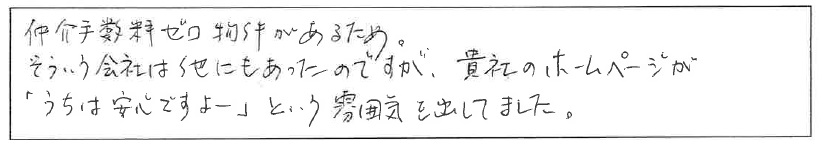 仲介手数料ゼロ物件があるため。
そういう会社は他にもあったのですが、貴社のホームページが
「うちは安心ですよー」という雰囲気を出してました。